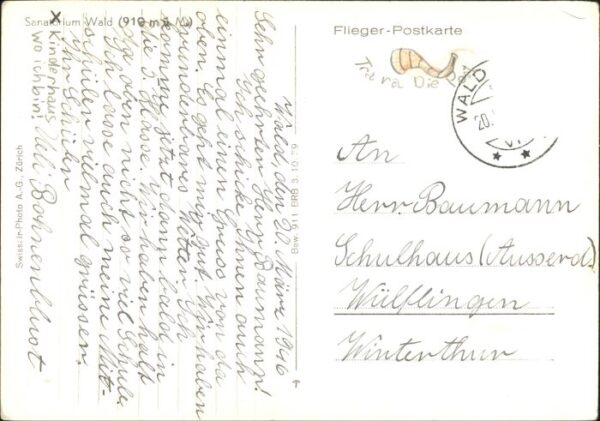 Sanatorium Wald (910 m ü. M.)
x Kinderhaus
wo ich bin!
Wald, den 20. März 1946
Sehr geehrter Herr Baumann!
Ich schicke Ihnen auch
einmal einen Gruss von da
oben. Es geht mir gut. Wir haben
wunderbares Wetter. Ich
komme jetzt dann bald in
die 3. Klasse. Wir haben halt
da oben nicht so viel Schule.
Ich lasse auch meine Mit-
schüler vielmal grüssen.
Ihr Schüler
Ueli Bohnenblust
Swissair-Photo A. G., Zürich
Bew. 911 BRB 3.10.39
Flieger-Postkarte
Tra ra Die Post
WALD
20.
VI.
An
Herr Baumann
Schulhaus (Ausserd.
Wülflingen
Winterthur